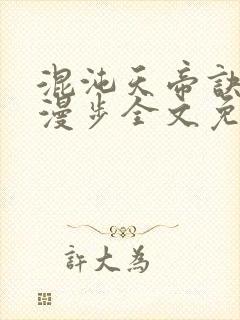 混沌天帝訣
漫步全文免
許大為